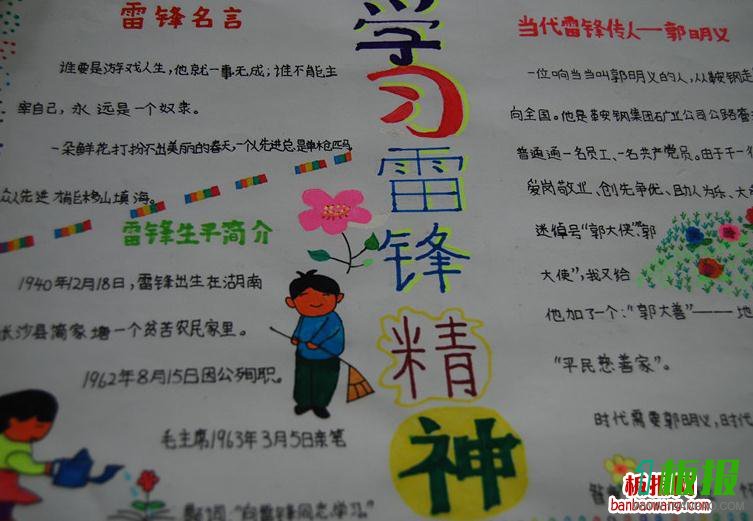 雷锋名言
谁要是游戏人生，他就一事无成；谁不能主
宰自己，永远是一个奴隶。
一朵鲜花打扮不出美丽的春天，一个人先进总是单枪匹马，
众人先进才能移山填海。
雷锋生平简介
1940年12月18日，雷锋出生在湖南
长沙县简家塘一个贫苦农民家里。
1962年8月15日因公殉职。
毛主席1963年3月5日亲笔
题词："向雷锋同志学习"。
学习雷锋精神
当代雷锋传人——郭明义
一位响当当叫郭明义的人，从鞍钢走
向全国。他是鞍钢集团矿业公司公路
普普通通一名员工、一名共产党员。由于千一
爱岗敬业、创先争优、助人为乐、大
送绰号"郭大侠""郭
大使"，我又给
他加了个："郭大善"——地
"平民慈善家"。
时代需要郭明义，时代
板报网
banbaowang.com
板报